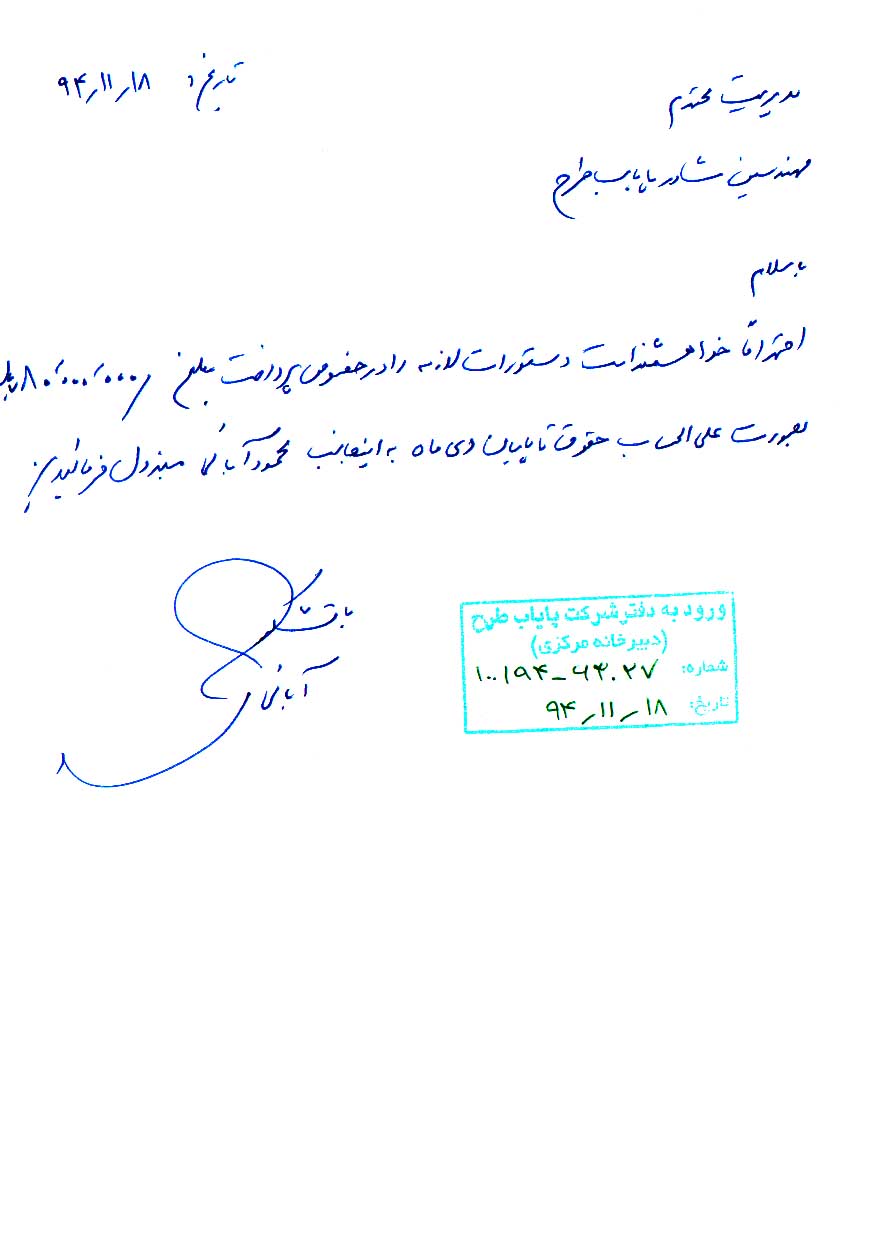 تاریخ: ۹۴/۱۱/۱۸
مدیریت محترم
مهندسین مشاور پایاب طرح
با سلام
احتراماً خواهشمند است دستورات لازمه را در خصوص پرداخت مبلغ ۸۰,۰۰۰,۰۰۰ ریال
بصورت علی الحساب حقوق تا پایان دی ماه به اینجانب محمود آبائی مبذول فرمائید.
با تشکر
آبائی
ورود به دفتر شرکت پایاب طرح
(دبیرخانه مرکزی)
شماره: ۱۰۰۱۹۴-۶۴۰۲۷
تاریخ: ۹۴/۱۱/۱۸